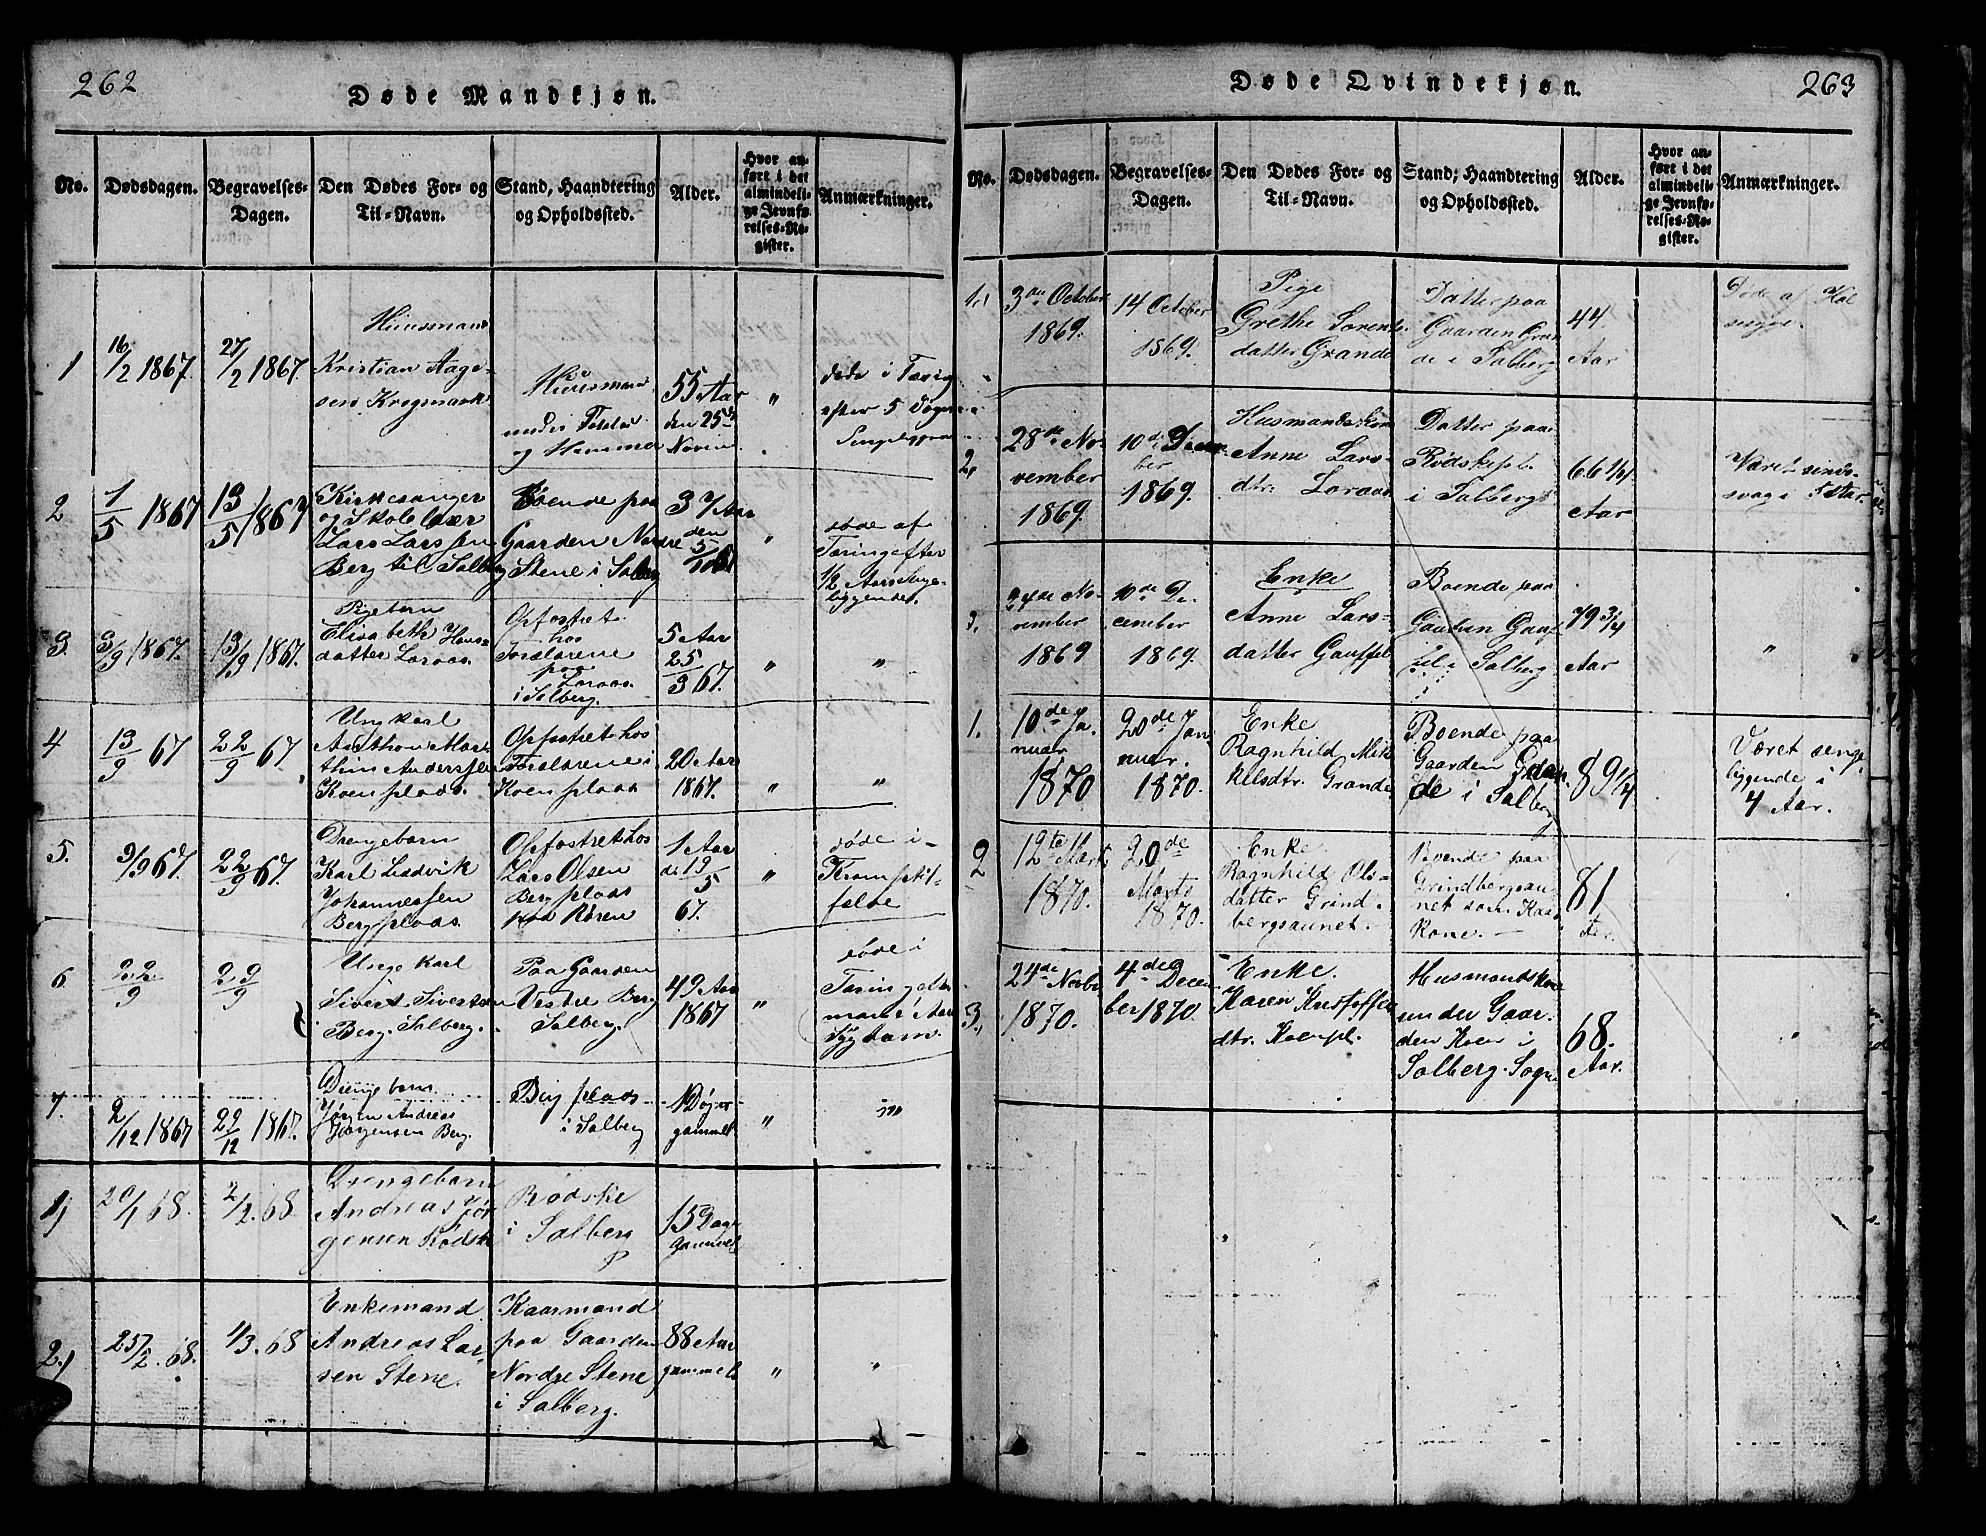 262
Døde Mandkjøn.
No.
Dødsdagen.
Begravelses-
Dagen.
Den Dødes For- og
Til-Navn.
Stand, Haandtering
og Opholdssted.
Alder.
Hvor an-
ført i det
almindeli-
ge Jevnfø-
relses-Re-
gister.
Anmærkninger.
1
16/2 1867.
27/2 1867.
Huusmand
Kristian Aage-
sen Krogmark
Huusmand
under
og Hammer
55 Aar
den 25de
Novem
"
døde i Tæring
efter 5 Døgns
2
1/5 1867
13/5 1867
Kirkesanger
og Skolelær
Lars Larssen
Berg til Salberg
Boende paa
Gaarden Nordre
Stene i Salberg
37 Aar
den
5/
"
døde af
Tæring efter
1/2 Aars Senge-
liggende.
3.
3/9 1867.
13/9 1867.
Pigebarn
Elisabeth Hans-
datter Loraas
Opfostret
hos
Forældrene
paa
Loraas
i Salberg.
5 Aar
25/3 67.
"
"
4
13/9 67
22/9 67
Ungkarl
Anthon Mar-
thin Anderssen
Koenplads.
Opfostret hos
Forældrene i
Koenplads
20 Aar
1867.
"
"
5.
9/9 67.
22/9 67.
Drengebarn
Karl Ludvik
Johannessen
Bergplads.
Opfostret hos
Lars Olsen
Bergplads
paa Røren
1 Aar
d. 19/5
67.
"
døde i
Krampetil-
fælde
6
22/9
29/9
Unge Karl
Sivert Sivertsen
Berg. Salberg.
Paa Gaarden
Vestre Berg
Salberg.
49 Aar
1867
"
døde i
7.
2/12 1867
22/12 1867.
Drengebarn
Jørgen Andreas
Jørgensen Berg.
Berg plads
i Salberg
Døgn
gammel
"
"
1)
20/1 68.
2/2. 68
Drengebarn
Andreas Jør
gensen Rødsk
Rødske
i Salberg
15 Dage
gammel
2.)
25/2. 68.
1/3. 68
Enkemand
Andreas Lar-
sen Stene.
Kaarmand
paa Gaarden
Nordre Stene
i Salberg.
88 Aar
gammel
"
"
263
Døde Qvindekjøn.
No.
Dødsdagen.
Begravelses-
Dagen.
Den Dødes For- og
Til-Navn.
Stand, Haandtering
og Opholdssted.
Alder.
Hvor an-
ført i det
almindeli-
ge Jevnfø-
relses-Re-
gister.
Anmærkninger.
1.
3die October
1869.
14 October
1869.
Pige
Grethe Lorents-
datter Grande
Datter paa
Gaarden Gran
de i Salberg
44
Aar
Døde af
2.
28de No-
vember
1869.
10de Decem-
ber
1869.
Husmandskone
Anne Lars-
dtr. Loraas
Datter paa
Rødskepl.
i Salberg
66 1/4
Aar
Været sinds-
svag i
3.
No-
vember
1869
10de De-
cember
1869.
Enke
Anne Lars-
datter Gauffel
Boende paa
Gaarden Gauf-
fel i Salberg
79 3/4
Aar
"
1.
10de Ja-
nuar
1870
20de Jan
nuar.
1870.
Enke
Ragnhild Mik
kelsdtr. Grande
Boende paa
Gaarden Gran-
de i Salberg
89 1/4
Været senge
liggende i
4 Aar.
2
12te Marts
1870.
20de
Marts
1870.
Enke
Ragnhild Ols-
datter Grind-
bergsaunet.
Boende paa
Grindbergsau-
net som Kaar
Kone.
81
3.
24de Novbr
1870.
4de Decem
ber 1870.
Enke.
Karen Kristoffers
dtr. Koenpl.
Husmandskone
under Gaar-
den Koen i
Salberg. Sogn
68.
Aar.
"